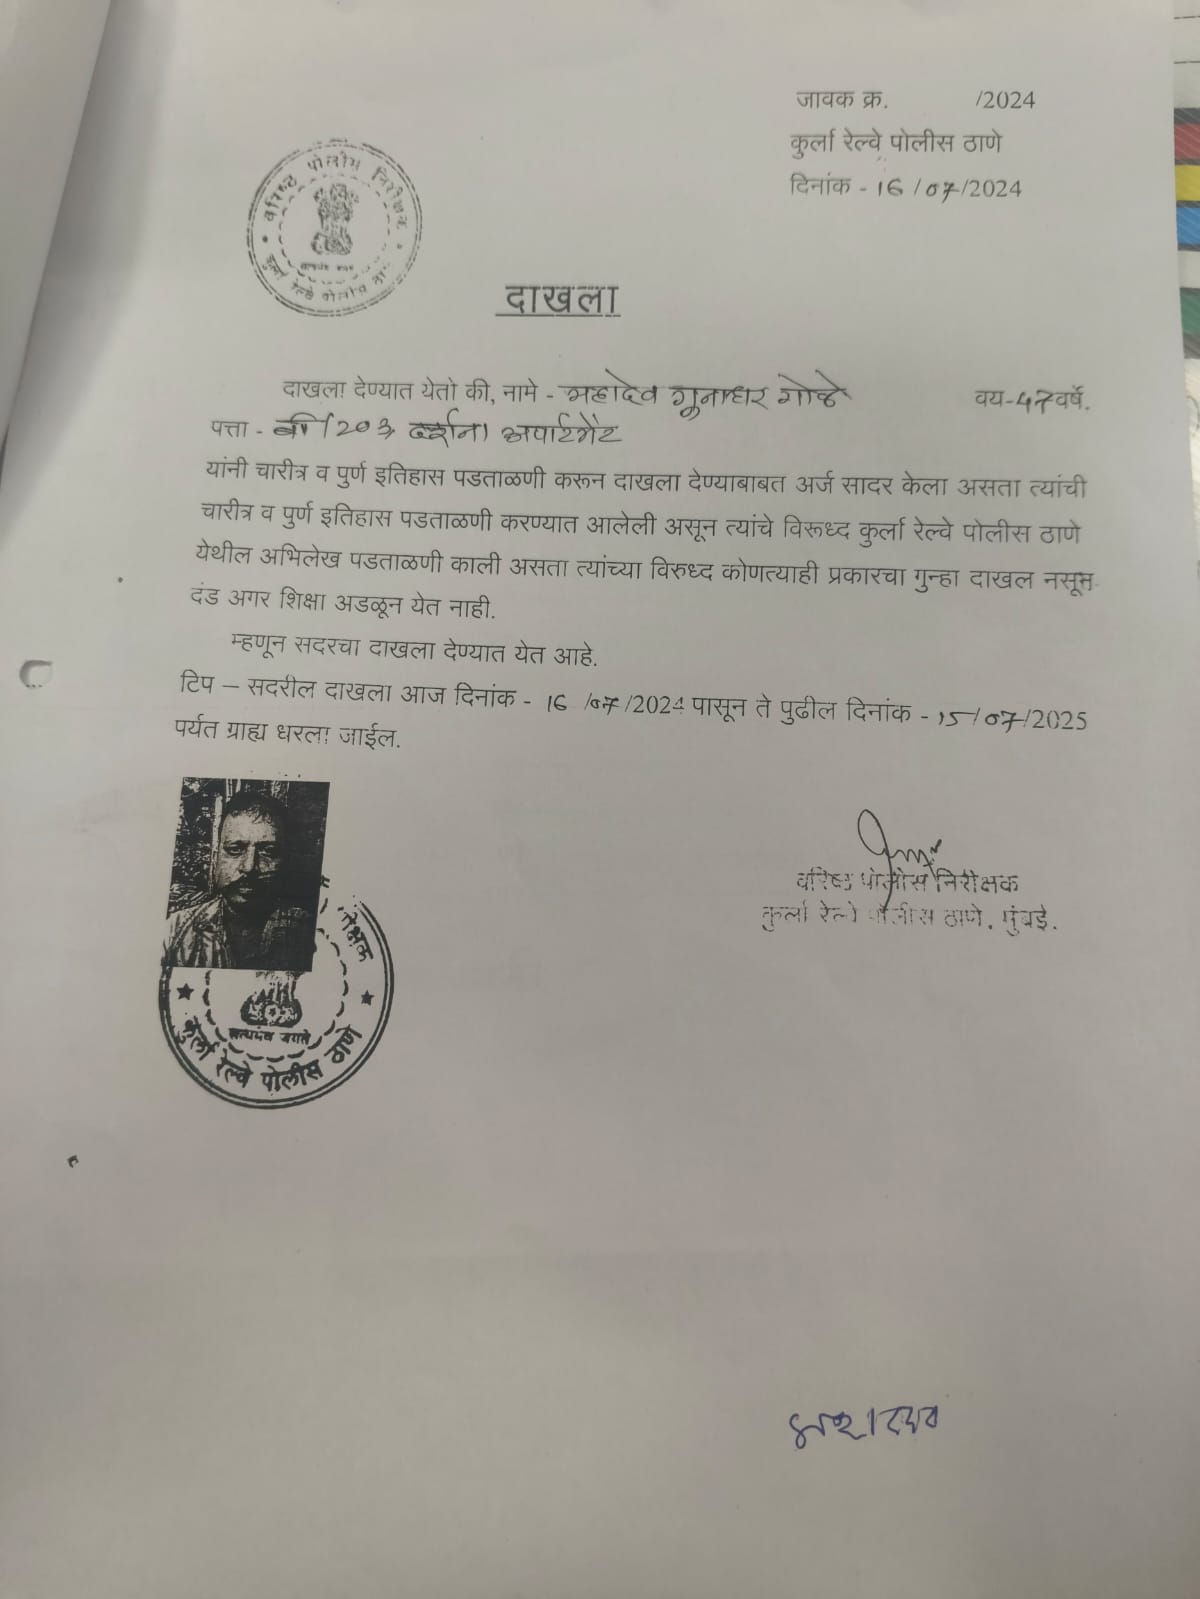 जावक क्र. /2024
कुर्ला रेल्वे पोलीस ठाणे
दिनांक - 16/07/2024
वरिष्ठ पोलीस निरीक्षक
कुर्ला रेल्वे पोलीस ठा
दाखला
दाखला देण्यात येतो की, नामे - महादेव गुनाधर गोळे वय-47वर्षे.
पत्ता - बी/203 दर्शना अपार्टमेंट
यांनी चारीत्र व पुर्ण इतिहास पडताळणी करून दाखला देण्याबाबत अर्ज सादर केला असता त्यांची
चारीत्र व पुर्ण इतिहास पडताळणी करण्यात आलेली असून त्यांचे विरूध्द कुर्ला रेल्वे पोलीस ठाणे
येथील अभिलेख पडताळणी काली असता त्यांच्या विरुध्द कोणत्याही प्रकारचा गुन्हा दाखल नसून
दंड अगर शिक्षा अडळून येत नाही.
म्हणून सदरचा दाखला देण्यात येत आहे.
टिप – सदरील दाखला आज दिनांक - 16 /07/2024 पासून ते पुढील दिनांक - 15/07/2025
पर्यत ग्राह्य धरला जाईल.
वरिष्ठ पोलीस निरीक्षक
कुर्ला रेल्वे पोलीस ठाणे, मुंबई.
सत्यमेव जयते
कुर्ला रेल्वे पोलीस ठाणे
महादेव